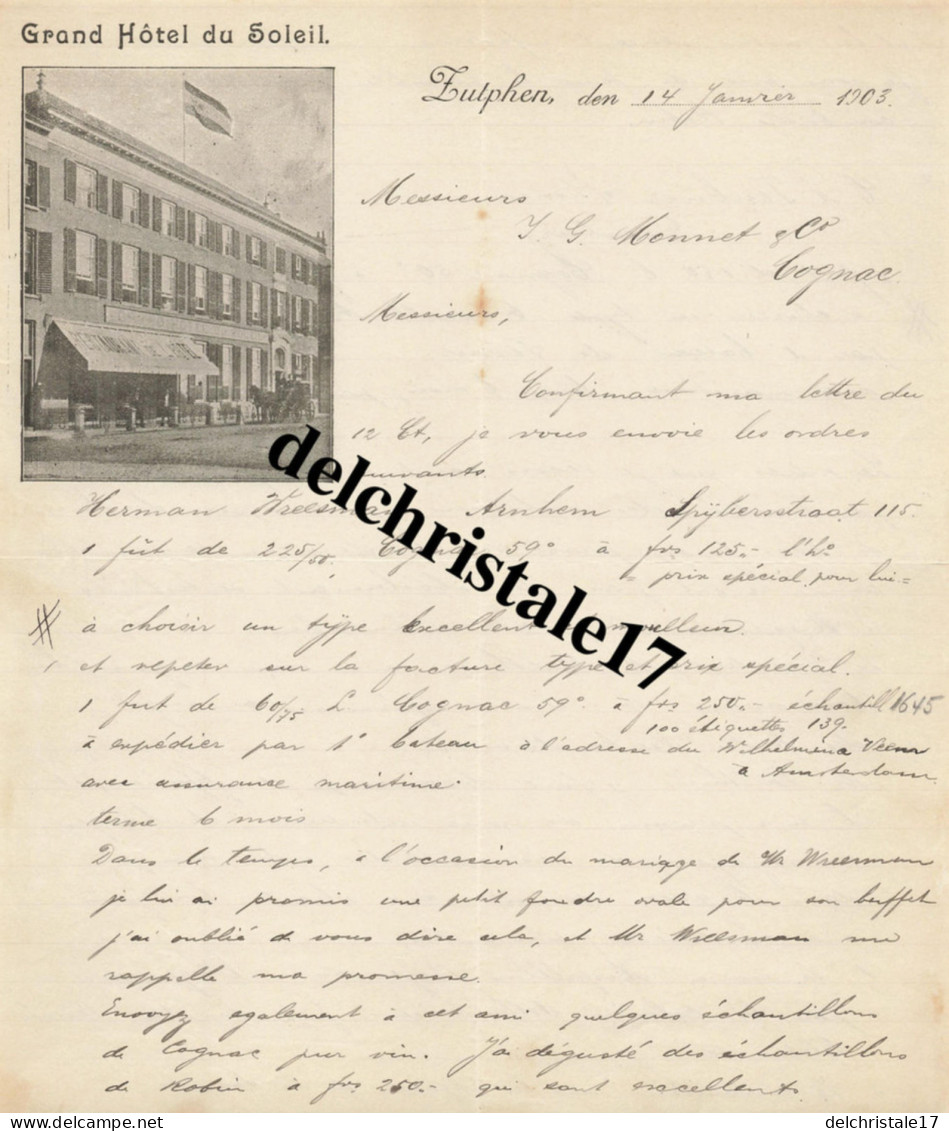 Grand Hôtel du Soleil.
Zutphen, den 14 Janvier 1903.
Messieurs
J. G. Monnet & Co
Cognac.
Messieurs,
Confirmant ma lettre du
12 Ct, je vous envoie les ordres
suivants.
Herman Wreesman Arnhem Spijkerstraat 115.
1 fût de 225/50, Cognac 59° à frs 125.- l'ho
= prix spécial pour lui =
à choisir un type excellent &
et repeter sur la facture type et prix spécial.
1 fut de 60/75 L. Cognac 59° à frs 250.- échantill 1645
100 étiquettes 139.
à expédier par 1r bateau à l'adresse du Wilhelmina Veem
à Amsterdam
avec assurance maritime.
terme 6 mois
Dans le temps, à l'occasion du mariage de Mr Wreesman
je lui ai promis une petit foudre ovale pour son buffet
j'ai oublié de vous dire cela, et Mr Wreesman me
rappelle ma promesse.
Envoyez egalement à cet ami quelques échantillons
de Cognac pur vin. J'ai dégusté des échantillons
de Robin à frs 250.- qui sont excellents.
delchristale17
delcampe.net
delchristale17